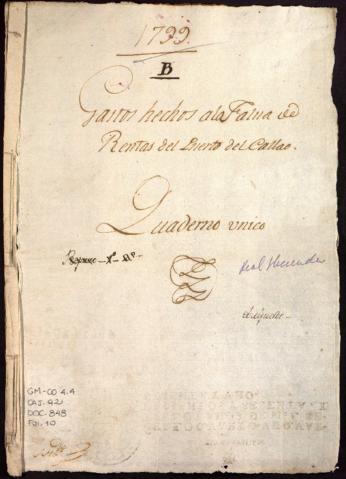 1799
B
Gastos hechos a la Falua de
Rentas del Puerto del Callao.
Quaderno vnico
Real Hacienda
GM-CO 4.4
CAJ. 92
DOC. 848
FOL. 10